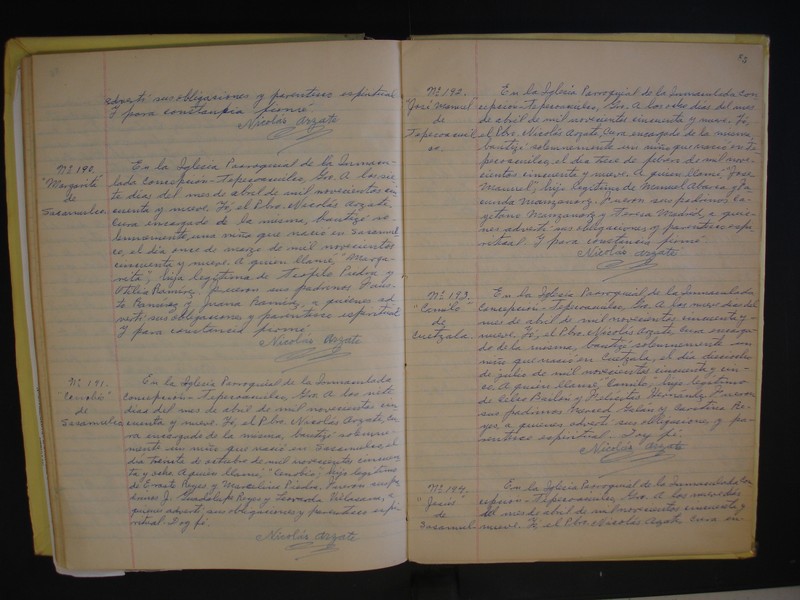 advertí sus obligaciones y parentesco espiritual
Y para constancia firmé
Nicolás Arzate
Nº 190.
"Margarita"
de
En la Iglesia Parroquial de la Inmacu-
lada Concepción - Tepecoacuilco, Gro. A los sie
te días del mes de abril de mil novecientos cin
cuenta y nueve. Yó, el Pbro. Nicolás Arzate
Cura encargado de la misma, bauticé so-
lemnemente, una niña que nació en
co, el día once de marzo de mil novecientos
cincuenta y nueve. A quien llamé, "Marga-
rita", hija legítima de Teofilo Piedra y
Otilia Ramírez. Fueron sus padrinos
Ramírez y Juana Ramírez, a quienes ad
vertí sus obligaciones y parentesco espiritual
Y para constancia firmé.
Nicolás Arzate
Nº 191.
"Cenobio"
de
En la Iglesia Parroquial de la Inmaculada
concepción - Tepecoacuilco, Gro. A los siete
días del mes de abril de mil novecientos cin
cuenta y nueve. Yó, el Pbro. Nicolás Arzate, Cu
ra encargado de la misma, bauticé solemne
mente un niño que nació en el
día treinta de octubre de mil novecientos cincuen
ta y ocho. A quien llamé, "Cenobio", hijo legítimo
de Reyes y Marcelina Piedra. Fueron sus pa
drinos J. Guadalupe Reyes y Villanueva, a
quienes advertí sus obligaciones y parentesco espi
ritual. Doy fé.
Nicolás Arzate
Nº 192.
"José Manuel"
de
Tepecoacuil
co.
En la Iglesia Parroquial de la Inmaculada con
cepción - Tepecoacuilco, Gro. A los ocho días del mes
de abril de mil novecientos cincuenta y nueve. Yó,
el Pbro. Nicolás Arzate, Cura encargado de la misma,
bauticé solemnemente un niño que nació en Te
pecoacuilco, el día trece de de mil nove-
cientos cincuenta y nueve. A quien llamé, "José
Manuel", hijo legítimo de Manuel Abarca y
Manzanarez. Fueron sus padrinos
Manzanarez y Teresa Madrid, a quie-
nes advertí sus obligaciones y parentesco espi-
ritual. Y para constancia firmé
Nicolás Arzate
Nº 193.
"Camilo"
de
Cuetzala.
En la Iglesia Parroquial de la Inmaculada
Concepción - Tepecoacuilco, Gro. A los nueve días del
mes de abril de mil novecientos cincuenta y
nueve. Yó, el Pbro. Nicolás Arzate, Cura encarga-
do de la misma, bauticé solemnemente un
niño que nació en Cuetzala, el día dieciocho
de julio de mil novecientos cincuenta y cin-
co. A quien llamé, "Camilo", hijo legítimo
de Celso Bailón y Fueron
sus padrinos y Carolina Re-
yes a quienes advertí sus obligaciones y pa-
rentesco espiritual. Doy fé.
Nicolás Arzate
Nº 194.
"Jesús
de
En la Iglesia Parroquial de la Inmaculada con
cepción - Tepecoacuilco, Gro. A los nueve días
del mes de abril de mil novecientos cincuenta y
nueve. Yó el Pbro. Nicolás Arzate, Cura en